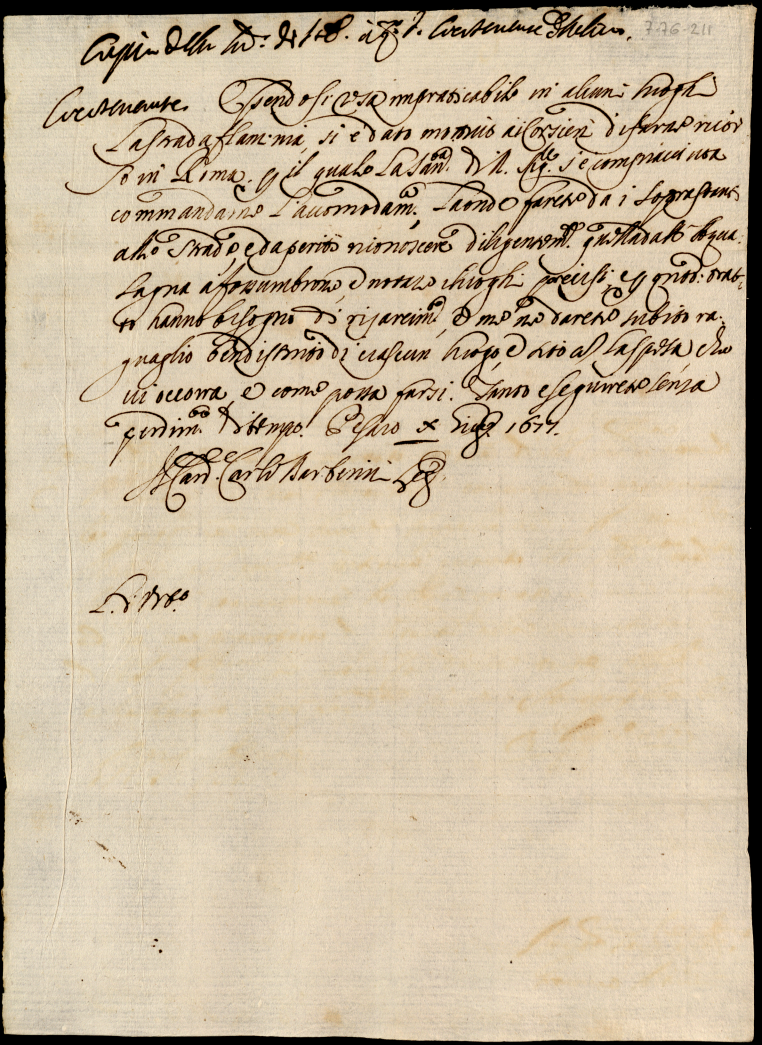 Copia della del Luogotenente
7-76-211
Luogotenente. Essendosi resa impraticabile in alcuni luoghi
la strada flaminia, si è dato motivo ai Corrieri di farne ricor
so in Roma, il quale la di N. Sig.re si è compiaciuta
commandarne l'accomodam.to. Laonde farete da i soprastanti
alle strade, e da periti riconoscere diligentem.te quella da Acqua-
lagna a fossumbrone, e notare i luoghi precisi,
to hanno bisogno di risarcim.to, e me ne darete subito ra-
guaglio ben distinto di ciascun luogo, e la spesa che
vi occorra, e come possa farsi. Tanto eseguirete senza
perdim.to di tempo. Pesaro X 1677.
Il Card. Carlo Barberini Leg.